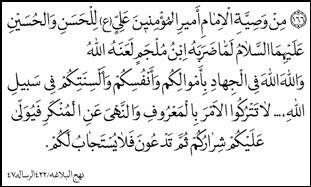 (١٦٦) مِنْ وَصِيَّةِ الْاِمٰامِ اَميرِ الْمُؤْمِنينَ عَلِيٍّ (ع) لِلْحَسَنِ وَالْحُسَيْنِ
عَلَيْهِمَا السَّلامُ لَمّٰا ضَرَبَهُ ابْنُ مُلْجَمٍ لَعَنَهُ اللهُ
وَاللهَ اللهَ فِى الْجِهادِ بِاَمْوالِكُمْ وَاَنْفُسِكُمْ وَاَلْسِنَتِكُمْ فى سَبيلِ
اللهِ،... لا تَتْرُكُوا الْاَمْرَ بِالْمَعْرُوفِ وَالنَّهْىَ عَنِ الْمُنْكَرِ فَيُوَلّىٰ
عَلَيْكُمْ شِرارُكُمْ ثُمَّ تَدْعُونَ فَلا يُسْتَجٰابُ لَكُمْ.
نهج البلاغه/٤٢٢ الرساله ٤٧